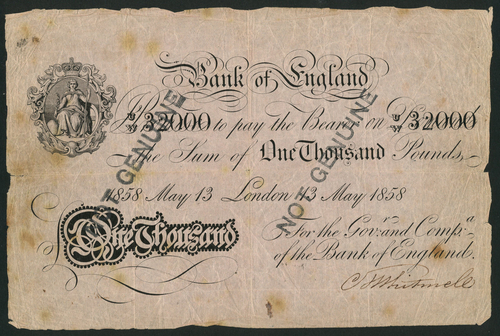 Bank of England
32000 to pay the Bearer on 32000
the Sum of One Thousand Pounds,
1858 May 13 London 13 May 1858
For the Gov.r and Comp.a
One Thousand
of the Bank of England.
NOT GENUINE
NOT GENUINE